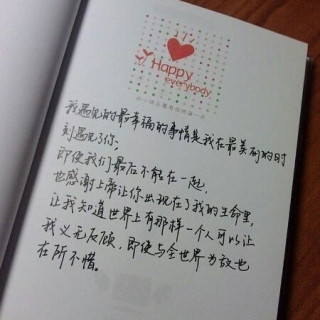 Happy
everybody
我遇见的最幸福的事情是我在最美丽的时
刻遇见了你.
即使我们最后不能在一起,
也感谢上帝让你出现在了我的生命里,
让我知道世界上有那样一个人可以让
我义无反顾,即使与全世界为敌也
在所不惜。